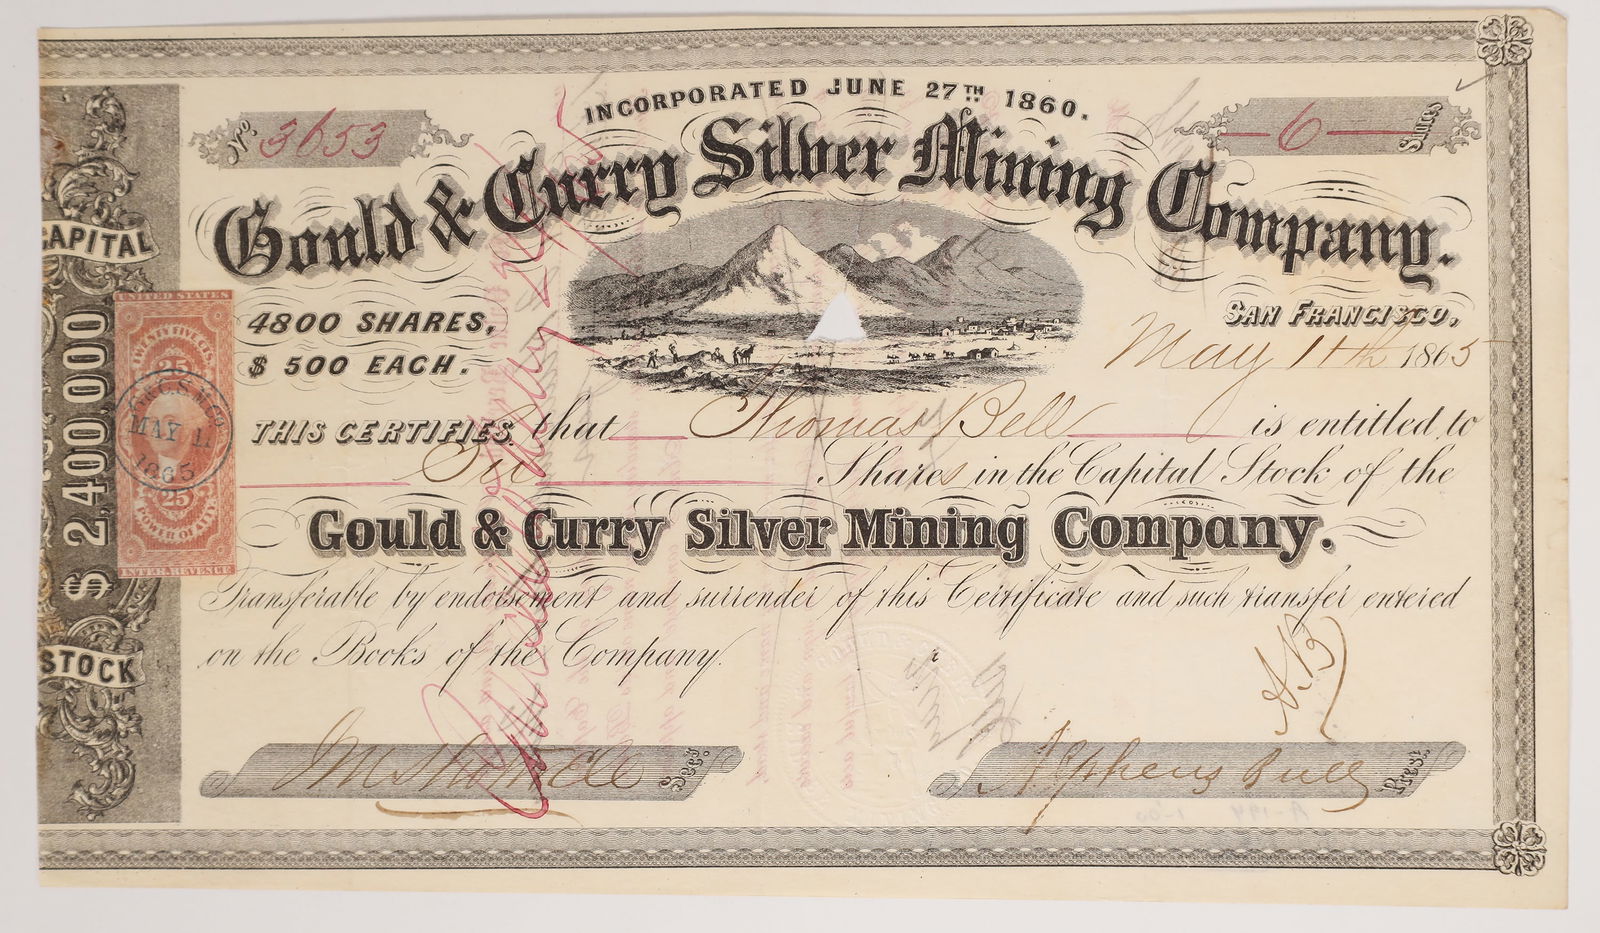 INCORPORATED JUNE 27TH 1860.
No. 3653
6 Shares
Gould & Curry Silver Mining Company.
CAPITAL
STOCK
$ 2,400,000
4800 SHARES,
$ 500 EACH.
SAN FRANCISCO,
May 11th 1865
UNITED STATES
TWENTY FIVE CTS.
MAY 11
1865
25
POWER OF ATTY.
INTER. REVENUE
THIS CERTIFIES that Thomas Bell is entitled to
Six Shares in the Capital Stock of the
Gould & Curry Silver Mining Company.
Transferable by endorsement and surrender of this Certificate and such transfer entered
on the Books of the Company.
A.B.
Secy.
Alpheus Bull Prest.